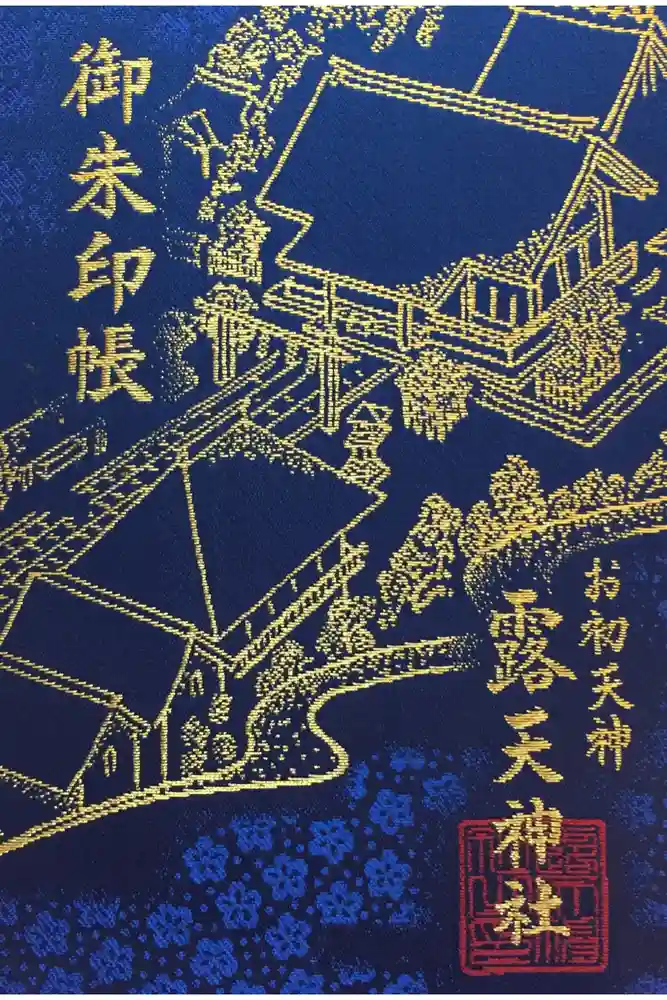 御朱印帳
お初天神
露天神社